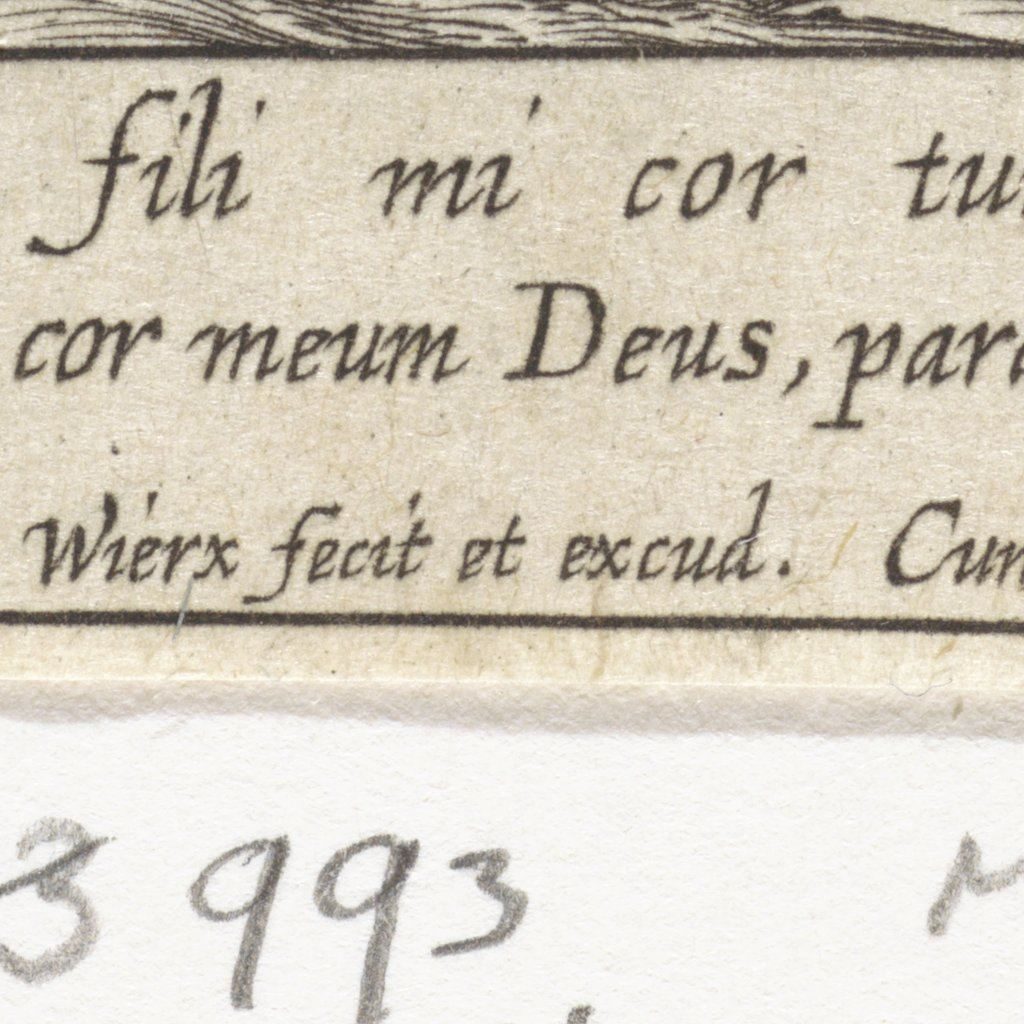 fili mi cor tu
cor meum Deus, para
Wierx fecit et excud. Cum
3993